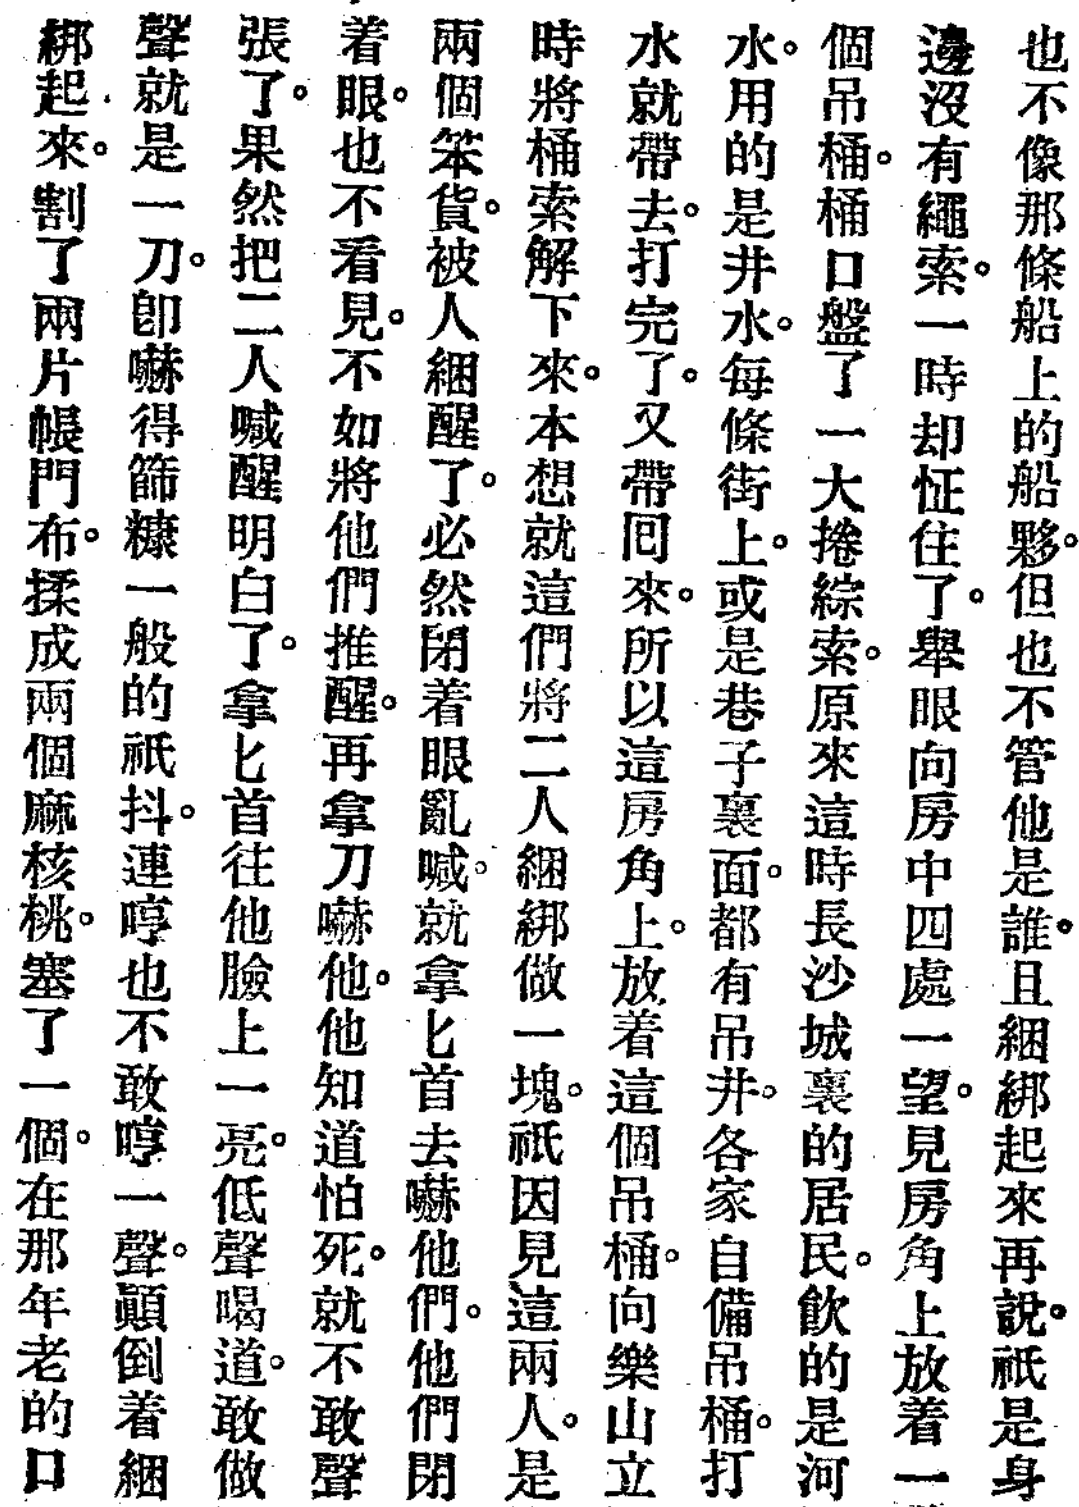 也不像那條船上的船夥。但也不管他是誰。且綑綁起來再說。祇是身
邊沒有繩索。一時却怔住了。舉眼向房中四處一望。見房角上放着一
個吊桶。桶口盤了一大捲綜索。原來這時長沙城裏的居民。飲的是河
水。用的是井水。每條街上。或是巷子裏面。都有吊井。各家自備吊桶。打
水就帶去。打完了。又帶囘來。所以這房角上。放着這個吊桶。向樂山立
時將桶索解下來。本想就這們將二人綑綁做一塊。祇因見這兩人。是
兩個笨貨。被人綑醒了。必然閉着眼亂喊。就拿匕首去嚇他們。他們閉
着眼。也不看見。不如將他們推醒。再拿刀嚇他。他知道怕死。就不敢聲
張了。果然把二人喊醒明白了。拿匕首往他臉上一亮。低聲喝道。敢做
聲就是一刀。卽嚇得篩糠一般的祇抖。連哼也不敢哼一聲。顚倒着綑
綁起來。割了兩片帳門布。揉成兩個麻核桃。塞了一個。在那年老的口